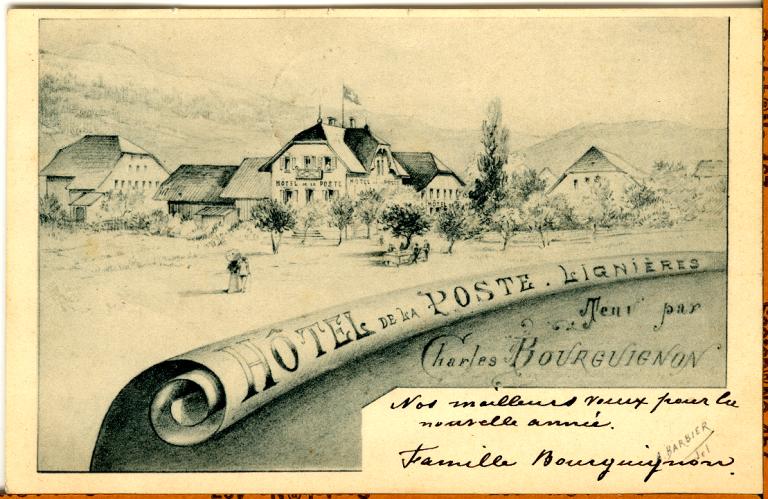 HÔTEL DE LA POSTE
HÔTEL DE LA POSTE . LIGNIÈRES
Tenu par
Charles BOURGUIGNON
Nos meilleurs vœux pour la
nouvelle année.
Famille Bourguignon.
A. BARBIER
del